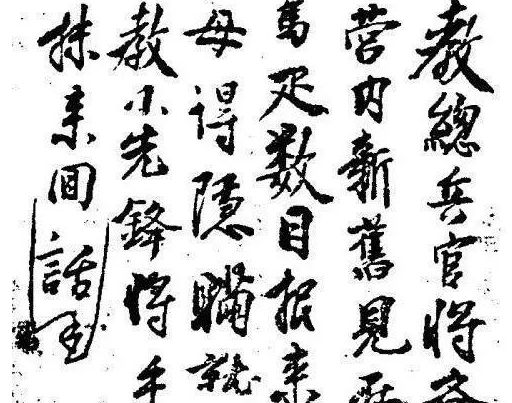 教總兵官將各
營内新舊見在
馬疋数目報来
毋得隱瞞就
教小先鋒將手
抹来回話